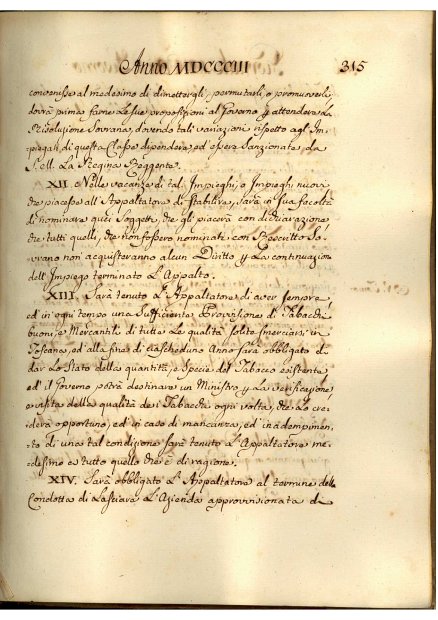 Anno MDCCCIII 315
convenisse al medesimo di dimettergli, permutarli, o promuoverli
dovrà prima farne le sue proposizioni al Governo, e attendere la
Risoluzione Sovrana, dovendo tali variazioni rispetto agl'Im-
piegati di questa Classe dipendere ed essere Sanzionate da
S. M. La Regina Reggente.
XII. Nelle vacanze di tali Impieghi, o Impieghi nuovi
che piacesse all'Appaltatore di stabilire, sarà in sua facoltà
di nominare quei Soggetti, che gli piacerà con dichiarazione
che tutti quelli, che non fossero nominati con Rescritto So-
vrano non acquisteranno alcun Diritto p. La continuazione
dell'Impiego terminato L'Appalto.
XIII. Sarà tenuto L'Appaltatore di aver sempre
ed in ogni tempo una Sufficiente Provvisione di Tabacchi
buoni, e Mercantili di tutte Le qualità solite smerciarsi in
Toscana, ed alla fine di ciascheduno Anno sarà obbligato di
dar Lo Stato della quantità, e Specie del Tabacco esistente
ed il Governo potrà destinare un Ministro p. La verificazione
e visita della qualità dei Tabacchi ogni volta, che Lo cre-
derà opportuno, ed in caso di mancanza, ed inadempimen-
to di una tal condizione sarà tenuto L'Appaltatore me-
desimo a tutto quello che è di ragione.
XIV. Sarà obbligato L'Appaltatore al termine della
Condotta di Lasciare L'Azienda approvvisionata di